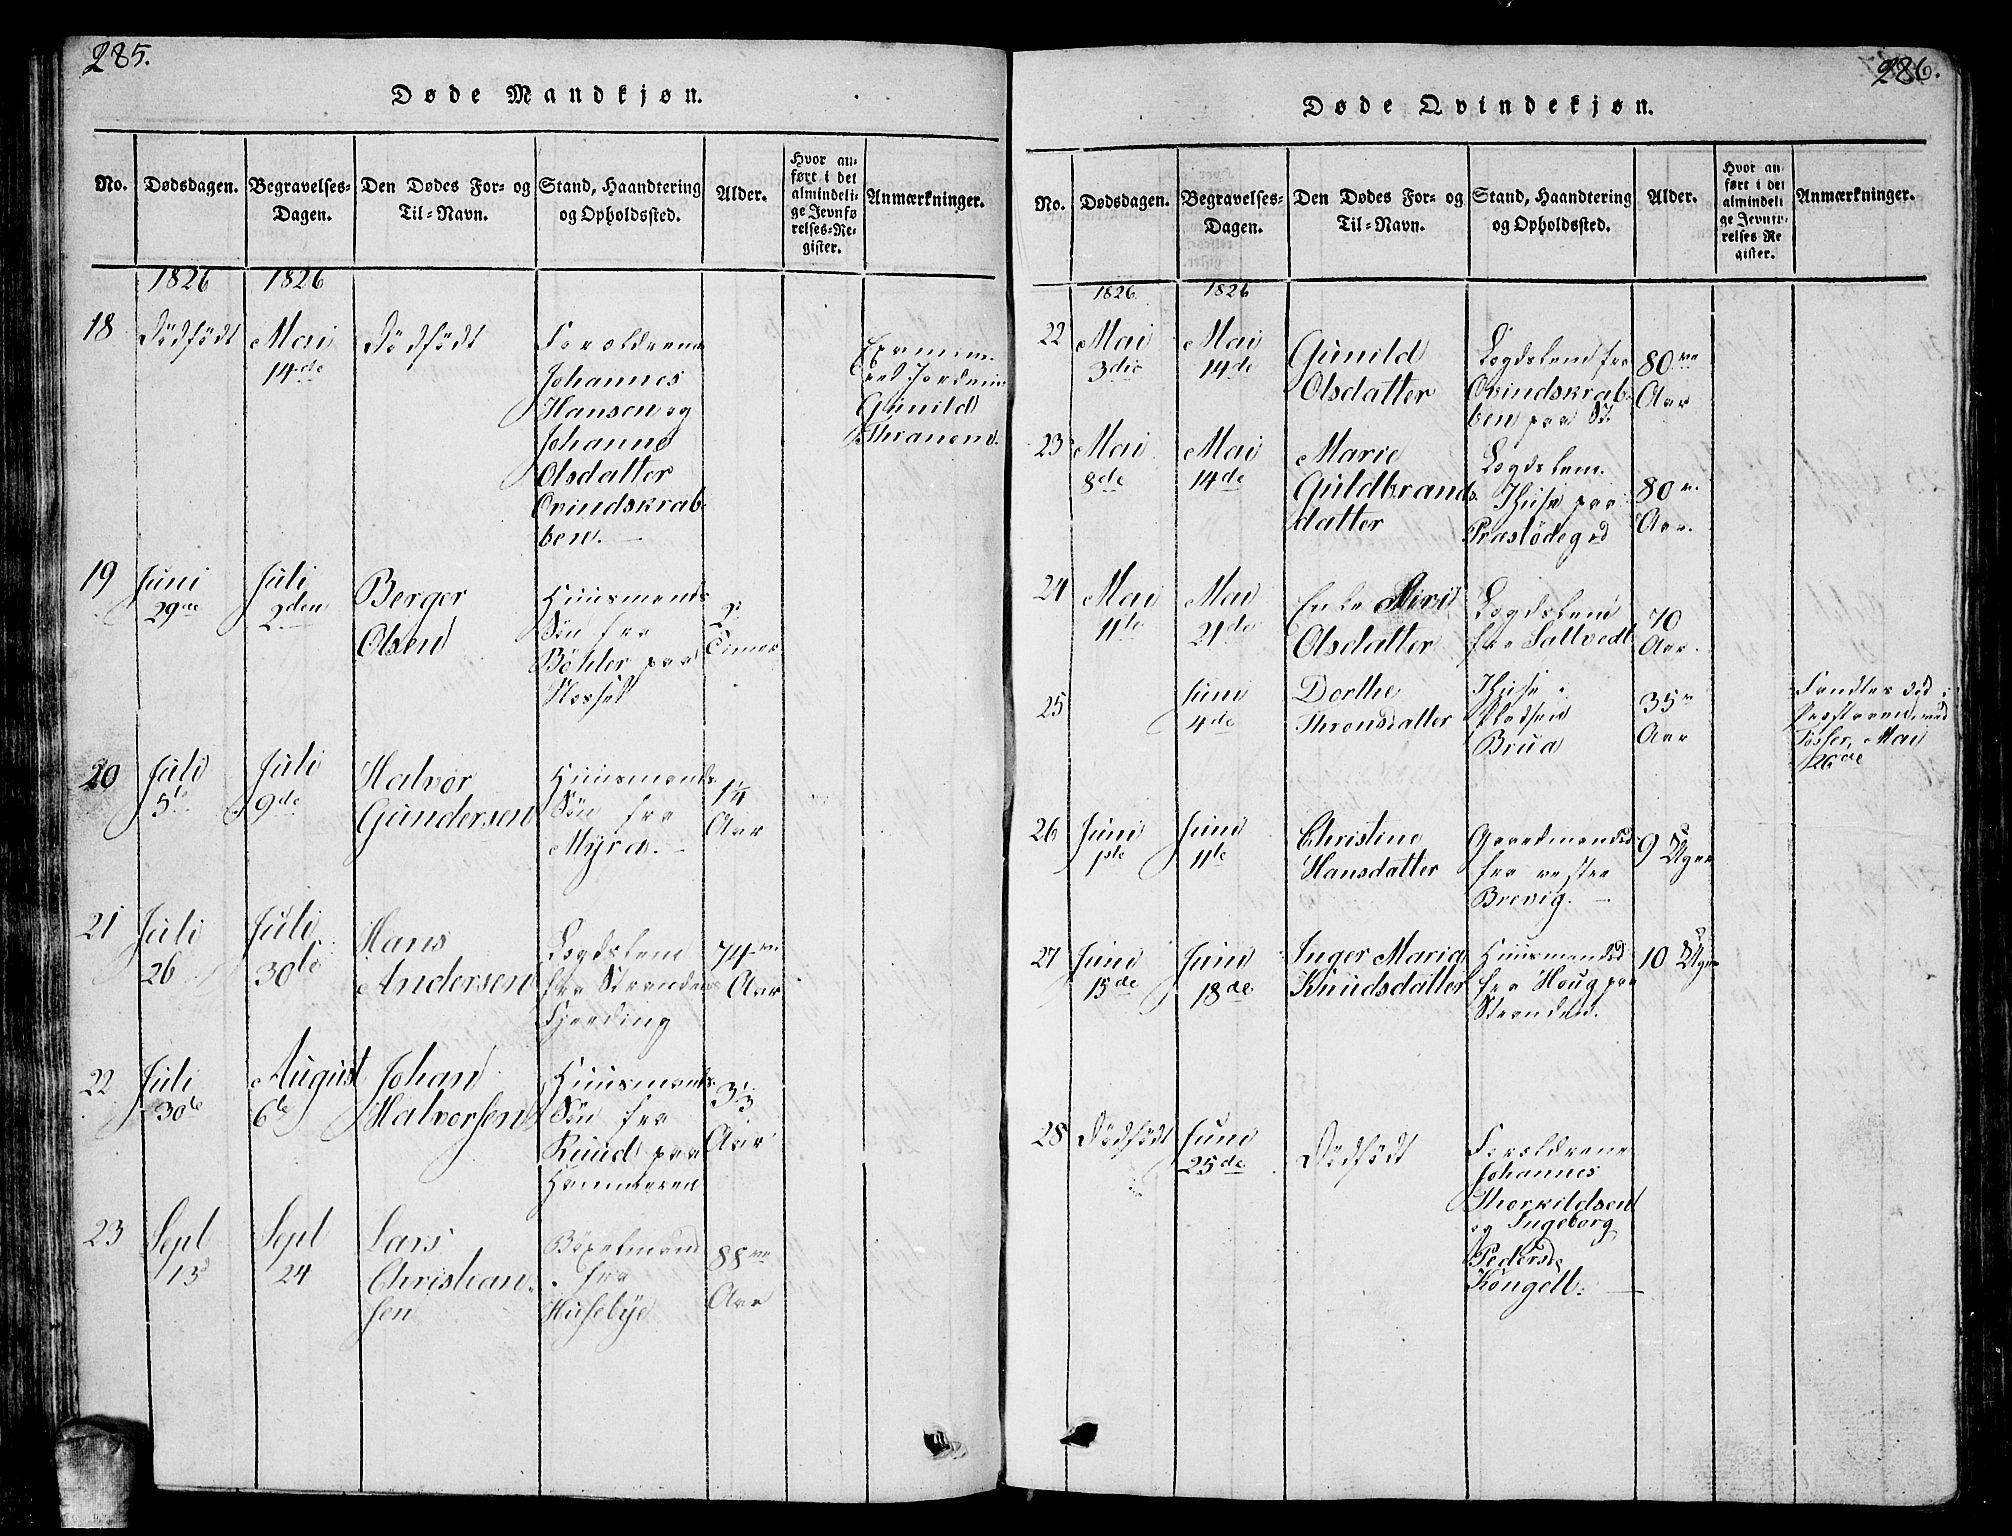 285.
Døde Mandkjøn.
No.
Dødsdagen.
Begravelses-
Dagen.
Den Dødes For- og
Til-Navn.
Stand, Haandtering
og Opholdssted.
Alder.
Hvor an-
ført i det
almindeli-
ge Jevnfø
relses-Re-
gister.
Anmærkninger.
1826 1826
18
Dödfödt
Mai
14de
Dödfödt
Forældrene
Johannes
Hansen og
Johanne
Olsdatter
Qvindskrab-
ben.
Gunild
Thranem.
19
Juni
29de
Juli
2den
Berger
Olsen
Huusmands
Sön fra
Böhler paa
2
Timer
20
Juli
5te
Juli
9de
Halvor
Gundersen
Huusmands
Sön fra
Myra.
1¼
Aar
21
Juli
26
Juli
30te
Hans
Andersen
Lægdslem
fra Stranden
Fjerding
74
Aar
22
Juli
30te
August
6te
Johan
Halvorsen
Huusmands
Sön fra
Ruud paa
Hammeren
3⅓
Aar
23
Sept
13
Sept
24
Lars
Christian-
sen
fra
Husebye
88
Aar
286.
Døde Qvindekjøn.
No.
Dødsdagen.
Begravelses-
Dagen.
Den Dødes For- og
Til-Navn.
Stand, Haandtering
og Opholdssted.
Alder.
Hvor an-
ført i det
almindeli
ge Jevnfø-
relses Re
gister.
Anmærkninger.
1826 1826
22
Mai
3die
Mai
14de
Gunild
Olsdatter
Lægdslem fra
Qvindskrab-
ben paa St.
80
Aar
23
Mai
8de
Mai
14de
Marie
Guldbrands-
datter
Lægdslem
80
Aar.
24
Mai
11te
Mai
21de
Enke Siri
Olsdatter
Lægdslem
fra Saltvedt
70
Aar.
25
Juni
4de
Dorthe
Thronsdatter
Pladsen
Brua
35
Aar
Fandtes död i
Mai
26de
26
Juni
1ste
Juni
11te
Christine
Hansdatter
Gaardmandsd
fra vestre
Brevig.
9 Uger
27
Juni
15de
Juni
18de
Inger Maria
Knudsdatter
Huusmandsd
fra Houg paa
Stranden.
10 Uger
28
Dödfödt
Juni
25de
Dödfödt
Forældrene
Johannes
Thorkildsen
og Ingeborg
Pedersd
Kongell.